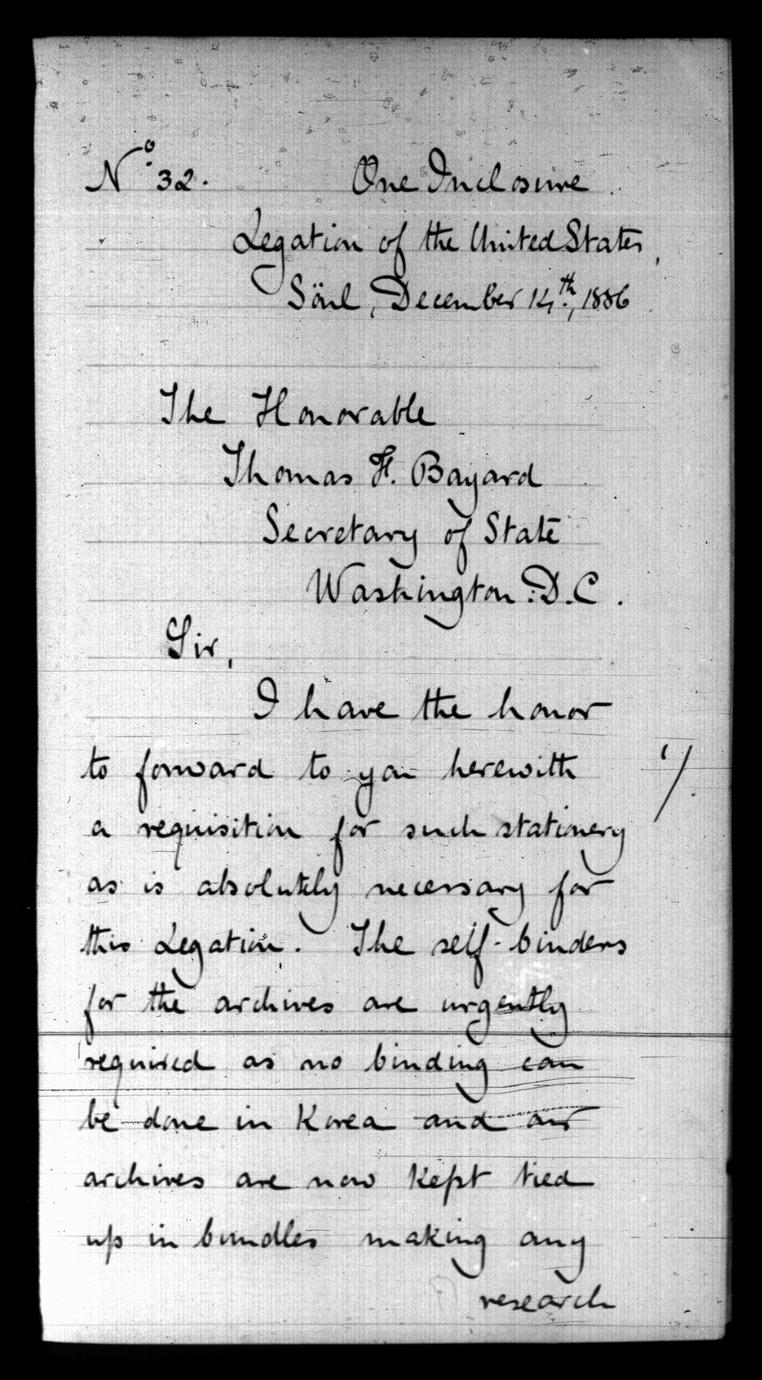 Nº 32. One Inclosure.
Legation of the United States,
Söul, December 14th, 1886
The Honorable
Thomas F. Bayard
Secretary of State
Washington: D.C.
Sir,
I have the honor
to forward to you herewith
1/.
a requisition for such stationery
as is absolutely necessary for
this Legation. The self-binders
for the archives are urgently
required as no binding can
be done in Korea and our
archives are now kept tied
up in bundles making any
research